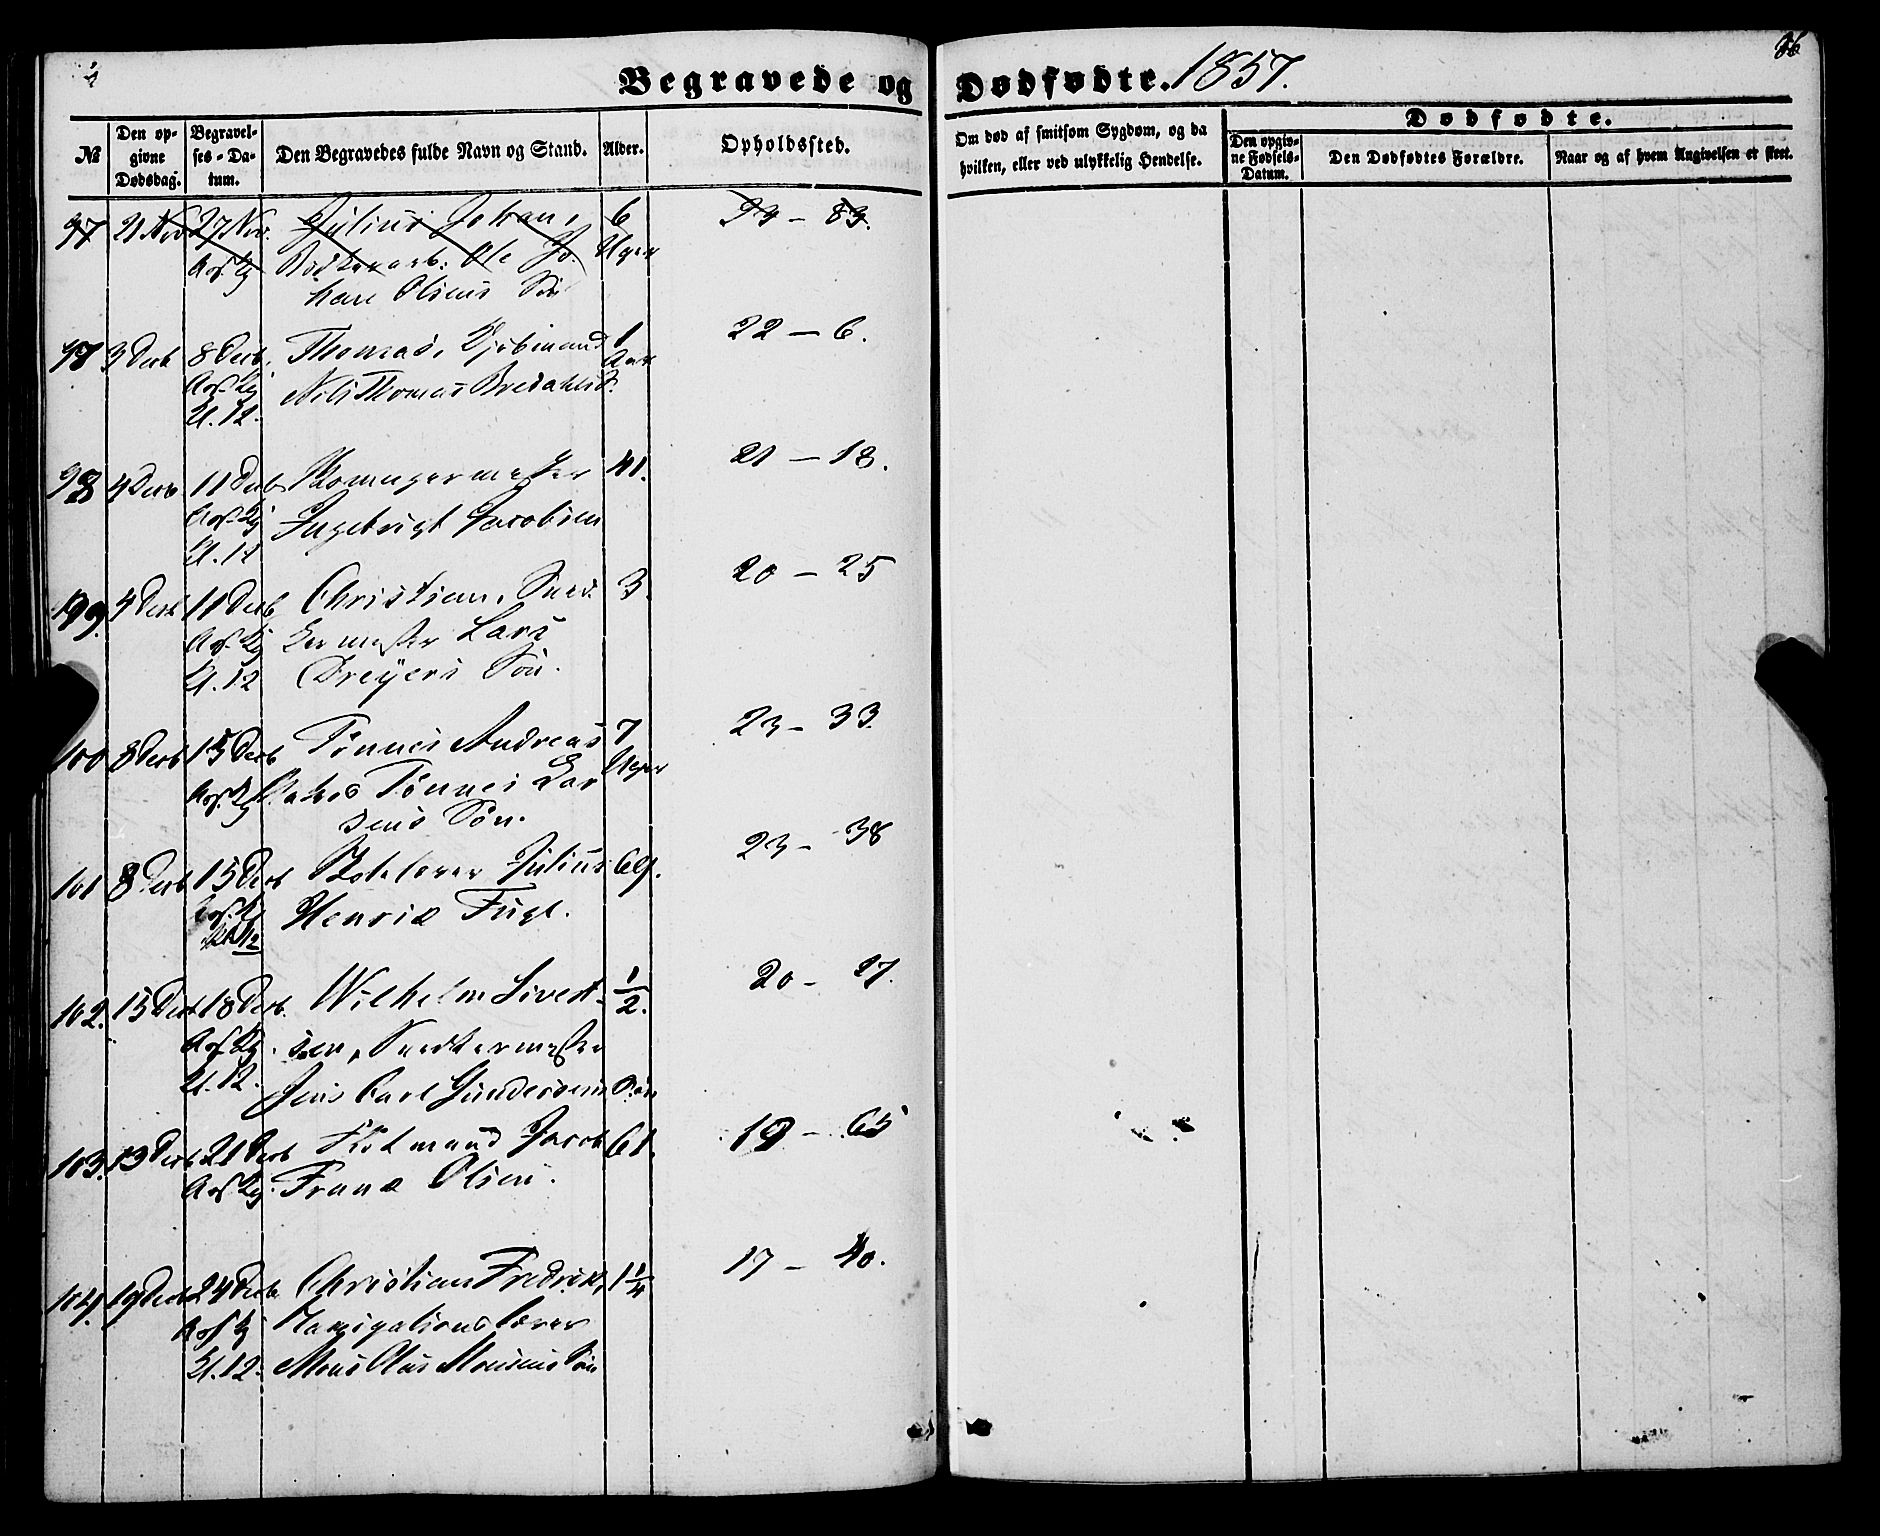 Begravede og Dødfødte. 1857.
86
№
Den opgivne Dødsdag.
Begravelses-Datum.
Den Begravedes fulde Navn og Stand.
Alder.
Opholdssted.
Om død af smitsom Sygdom, og da hvilken, eller ved ulykkelig Hendelse.
Dødfødte.
Den opgivne Fødsels-Datum.
Den Dødfødtes Forældre.
Naar og af hvem Angivelsen er skeet.
97 21 Nov 27 Nov. Julius Johan, 6
Ole Jo- Uger
han Olsens Søn
97 3 Decb 8 Decb. Thomas, 1 22 – 6.
Nils Thomas Bredahls S. Aar
Kl. 12.
98 4 Decb 11 Decb 41. 21 – 18.
Ingebrigt Jacobsen
Kl. 12
99. 4 Decb 11 Decb Christian, Sned- 3. 20 – 25
kermester Lars
Kl. 12 Dreyers Søn.
100 8 Decb 15 Decb Tønnes Andreas 7 23 – 33.
Tønnes Lar Uger
sens Søn.
101 8 Decb 15 Decb Julius 69. 23 – 38
Henrik Fugl.
102. 15 Decb 18 Decb. Wilhelm Sivert- 1/2. 20 – 27.
sen, Snedkermester
Kl. 12. Jens Carl Gundersens Søn
103. 13 Decb 21 Decb Jacob 61. 19 – 65
Frans Olsen.
104. 19 Decb 24 Decb Christian Fredrik, 1 1/4 17 – 40.
Navigationslærer
Kl. 12. Mons Olus Monsens Søn